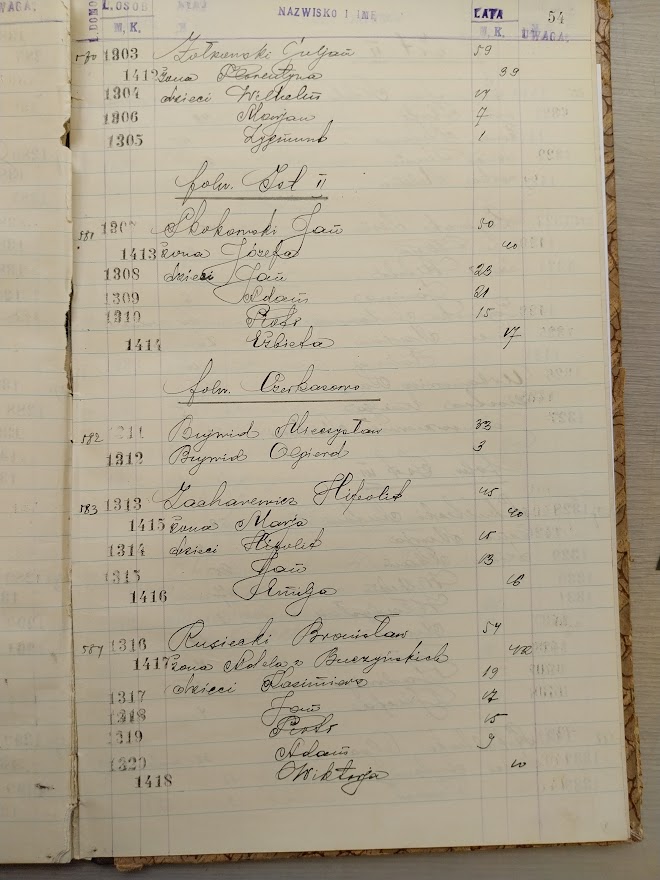 WAGA:
L. DOMU L. OSOB NAZWISKO I IMIĘ LATA 54
M. K. M. K. UWAGA:
580 1303 Żołkowski Juljan 59
1412 żona Florentyna 39
1304 dzieci Wilhelm 17
1306 Marjan 7
1305 Zygmunt 1
folw. II
581 1307 Skokowski Jan 50
1413 żona Józefa 40
1308 dzieci Jan 23
1309 Adam 21
1310 Piotr 15
1414 Elżbieta 17
folw. Czerkasowo
582 1311 Bujwid Mieczysław 33
1312 Bujwid Olgierd 3
583 1313 Zacharewicz Hipolit 45
1415 żona Marja 40
1314 dzieci Hipolit 15
1315 Jan 13
1416 Emilja 16
584 1316 Rusiecki Bronisław 54
1417 żona Adela z Buczyńskich 42
dzieci Kazimierz 19
1317 Jan 17
1318 Piotr 15
1319 Adam 9
1320 Wiktorja 10
1418